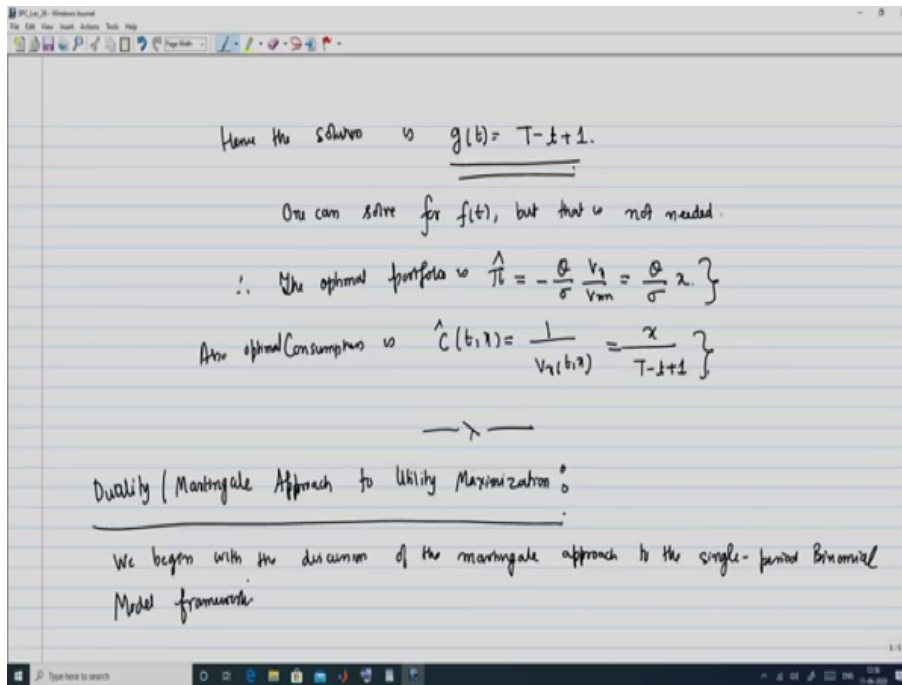 IPC_Lec_26 - Windows Journal
File Edit View Insert Actions Tools Help
Page Width
Hence the solution is g(t) = T-t+1.
One can solve for f(t), but that is not needed.
∴ The optimal portfolio is π̂ = - θ/σ Vx/Vxx = θ/σ x. }
Also optimal Consumption is ĉ(t,x) = 1/Vx(t,x) = x/T-t+1 }
Duality / Martingale Approach to Utility Maximization :
We begin with the discussion of the martingale approach to the single-period Binomial
Model framework
Type here to search